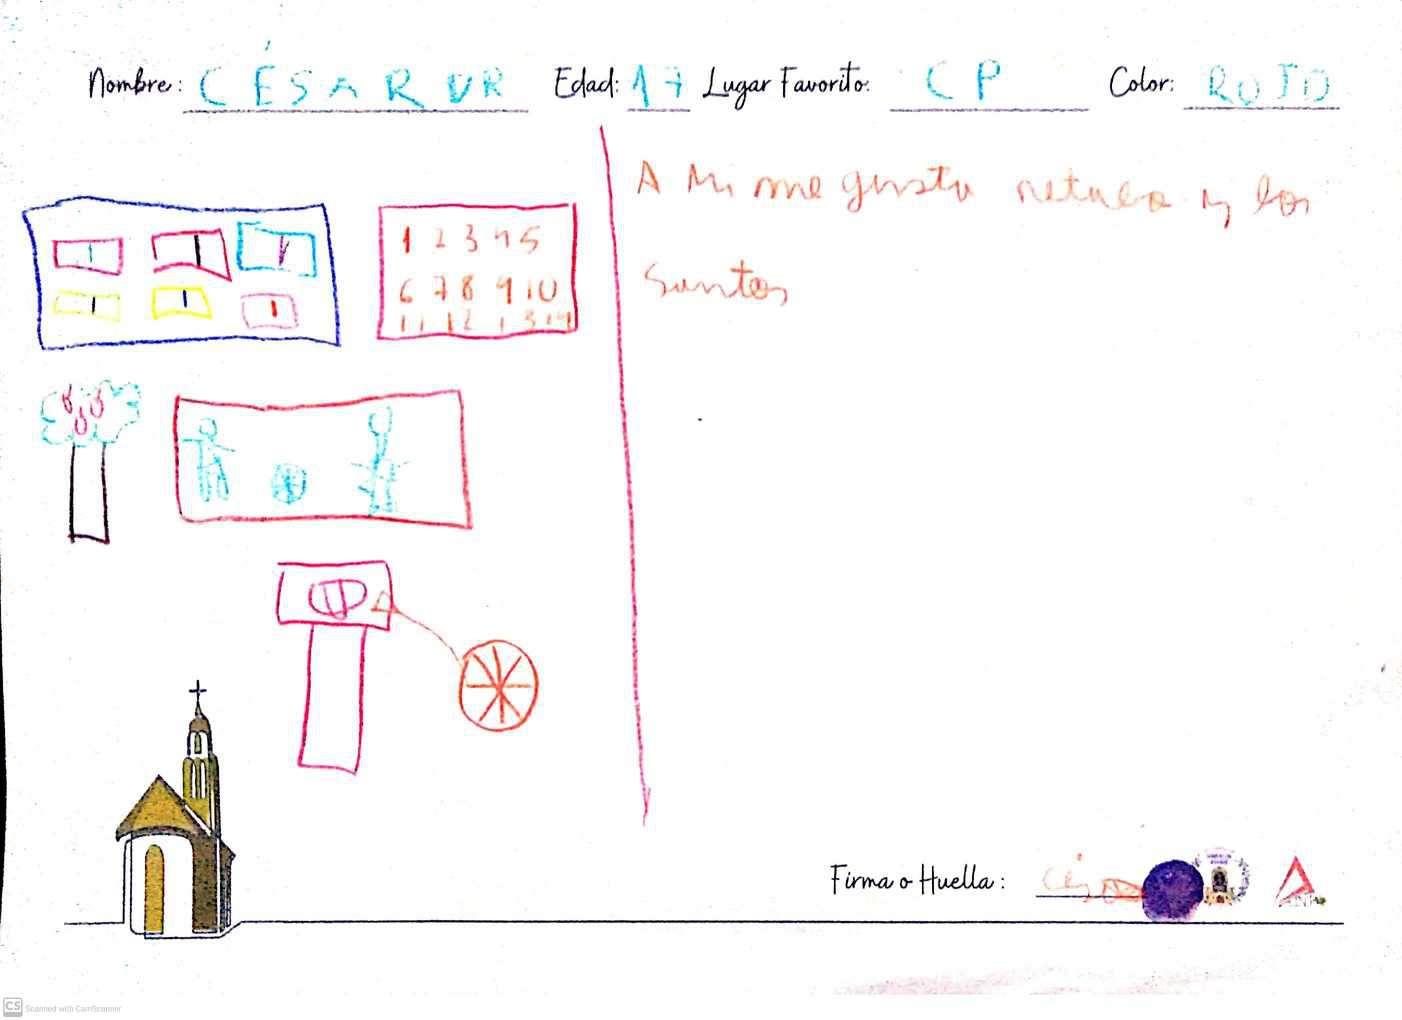 Nombre: CÉSAR VR Edad: 17 Lugar Favorito: CP Color: ROJO
A mi me gusta y los
santos
1 2 3 4 5
6 7 8 9 10
11 12 13 14
Firma o Huella: César
CS Scanned with CamScanner